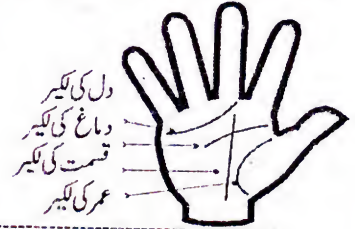 دل کی لکیر
دماغ کی لکیر
قسمت کی لکیر
عمر کی لکیر